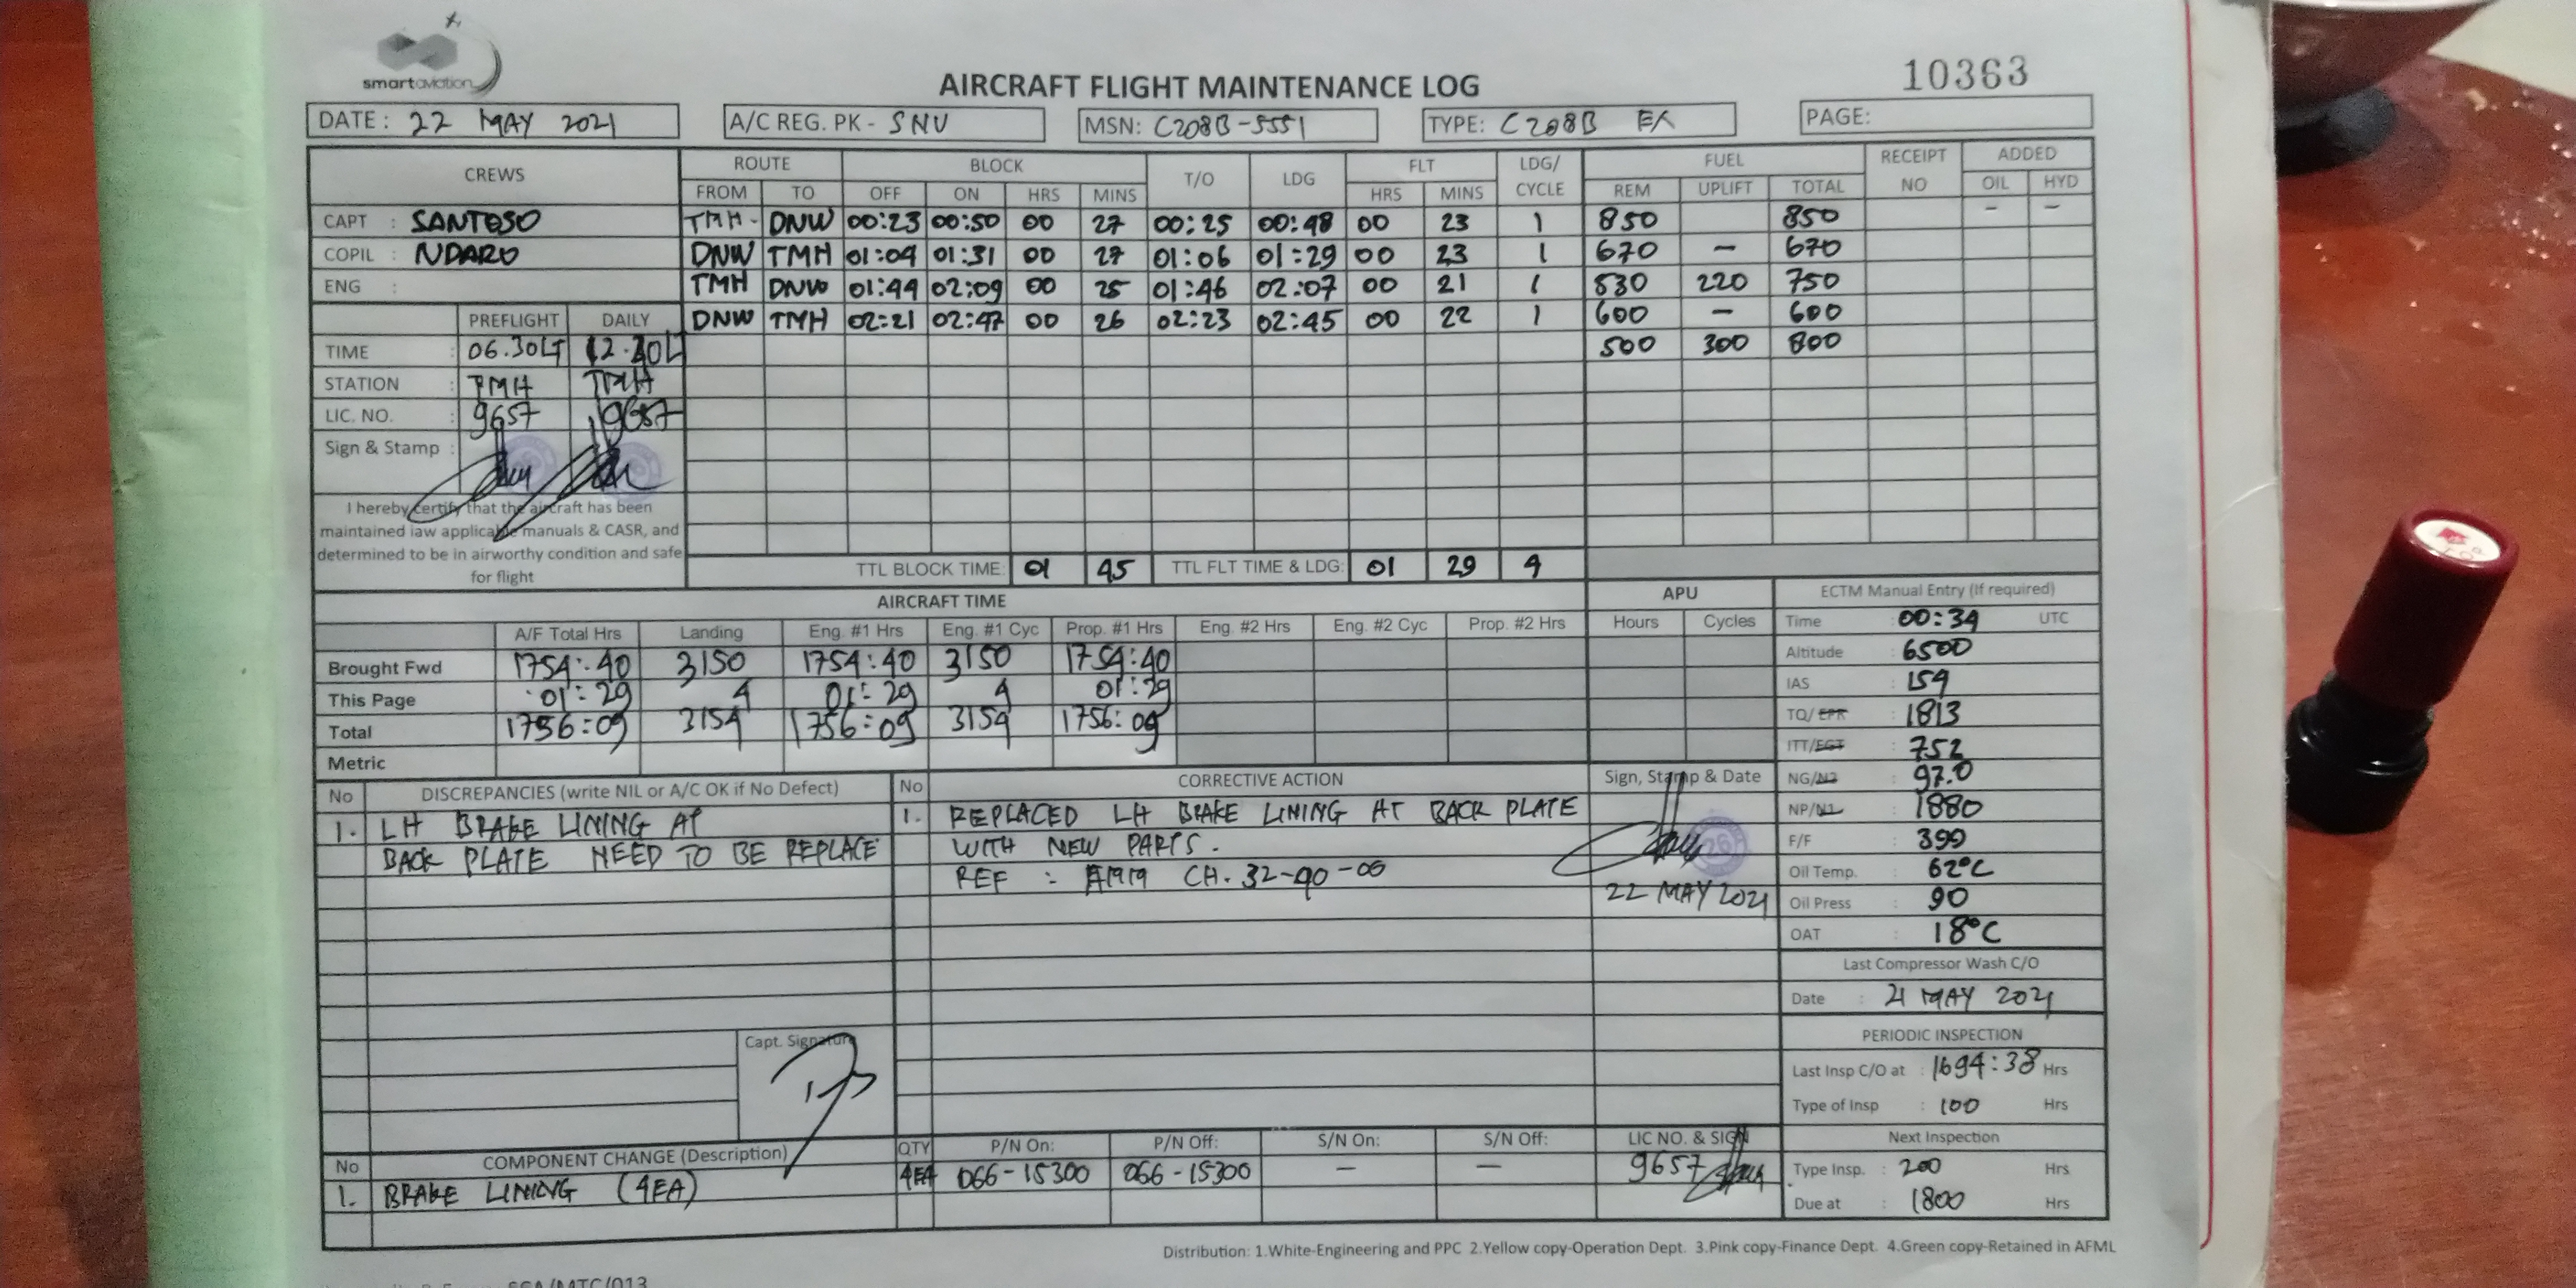 smartaviation
AIRCRAFT FLIGHT MAINTENANCE LOG
10363
DATE : 22 MAY 2021
A/C REG. PK - SNU
MSN: C208B-5551
TYPE: C208B EX
PAGE:
CREWS
ROUTE BLOCK T/O LDG FLT LDG/ CYCLE FUEL RECEIPT NO ADDED
FROM TO OFF ON HRS MINS HRS MINS REM UPLIFT TOTAL OIL HYD
CAPT : SANTOSO TMH - DNW 00:23 00:50 00 27 00:25 00:48 00 23 1 850 850 – –
COPIL : NDARU DNW TMH 01:04 01:31 00 27 01:06 01:29 00 23 1 670 – 670
ENG : TMH DNW 01:44 02:09 00 25 01:46 02:07 00 21 1 530 220 750
PREFLIGHT DAILY DNW TMH 02:21 02:47 00 26 02:23 02:45 00 22 1 600 – 600
TIME : 06.30LT 500 300 800
STATION : TMH TMH
LIC. NO. : 9657 9657
Sign & Stamp :
I hereby certify that the aircraft has been
maintained iaw applicable manuals & CASR, and
determined to be in airworthy condition and safe
for flight
TTL BLOCK TIME: 01 45 TTL FLT TIME & LDG: 01 29 4
AIRCRAFT TIME APU
A/F Total Hrs Landing Eng. #1 Hrs Eng. #1 Cyc Prop. #1 Hrs Eng. #2 Hrs Eng. #2 Cyc Prop. #2 Hrs Hours Cycles
Brought Fwd 1754:40 3150 1754:40 3150 1754:40
This Page 01:29 4 01:29 4 01:29
Total 1756:09 3154 1756:09 3154 1756:09
Metric
ECTM Manual Entry (If required)
Time : 00:34 UTC
Altitude : 6500
IAS : 154
TQ/EPR : 1813
ITT/EGT : 752
NG/N2 : 97.0
NP/N1 : 1880
F/F : 399
Oil Temp. : 62°C
Oil Press : 90
OAT : 18°C
Last Compressor Wash C/O
Date : 21 MAY 2021
PERIODIC INSPECTION
Last Insp C/O at : 1694:38 Hrs
Type of Insp : 100 Hrs
Next Inspection
Type Insp. : 200 Hrs
Due at : 1800 Hrs
No DISCREPANCIES (write NIL or A/C OK if No Defect)
1. LH BRAKE LINING AT
BACK PLATE NEED TO BE REPLACE
Capt. Signature
No CORRECTIVE ACTION Sign, Stamp & Date
1. REPLACED LH BRAKE LINING AT BACK PLATE
WITH NEW PARTS.
REF : AMM CH. 32-40-00
22 MAY 2021
No COMPONENT CHANGE (Description) QTY P/N On: P/N Off: S/N On: S/N Off: LIC NO. & SIGN
1. BRAKE LINING (4EA) 4EA 066-15300 066-15300 – – 9657
Distribution: 1.White-Engineering and PPC 2.Yellow copy-Operation Dept. 3.Pink copy-Finance Dept. 4.Green copy-Retained in AFML